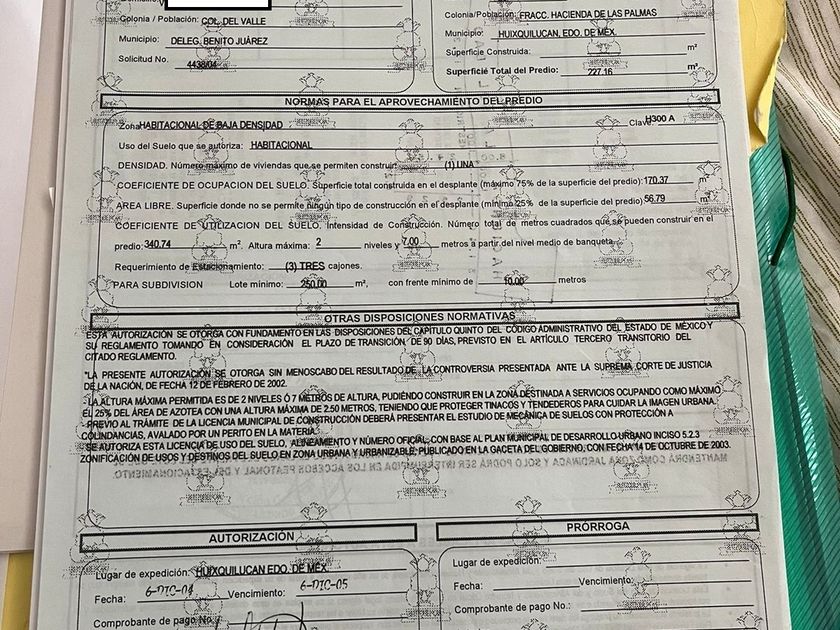 Colonia / Población: COL. DEL VALLE
Municipio: DELEG. BENITO JUÁREZ
Solicitud No. 4438/04
Colonia/Población: FRACC. HACIENDA DE LAS PALMAS
Municipio: HUIXQUILUCAN, EDO. DE MÉX.
Superficie Construida: m²
Superficie Total del Predio: 227.16 m².
NORMAS PARA EL APROVECHAMIENTO DEL PREDIO
Zona HABITACIONAL DE BAJA DENSIDAD Clave: H300 A
Uso del Suelo que se autoriza: HABITACIONAL
DENSIDAD. Número máximo de viviendas que se permiten construir: (1) UNA
COEFICIENTE DE OCUPACION DEL SUELO. Superficie total construida en el desplante (máximo 75% de la superficie del predio) 170.37 m²
AREA LIBRE. Superficie donde no se permite ningún tipo de construcción en el desplante (mínimo 25% de la superficie del predio) 56.79 m²
COEFICIENTE DE UTILIZACION DEL SUELO. Intensidad de Construcción. Número total de metros cuadrados que se pueden construir en el
predio: 340.74 m². Altura máxima: 2 niveles y 7.00 metros a partir del nivel medio de banqueta.
Requerimiento de Estacionamiento: (3) TRES cajones.
PARA SUBDIVISION Lote mínimo: 250.00 m², con frente mínimo de 10.00 metros
OTRAS DISPOSICIONES NORMATIVAS
ESTA AUTORIZACIÓN SE OTORGA CON FUNDAMENTO EN LAS DISPOSICIONES DEL CAPÍTULO QUINTO DEL CÓDIGO ADMINISTRATIVO DEL ESTADO DE MÉXICO Y
SU REGLAMENTO TOMANDO EN CONSIDERACIÓN EL PLAZO DE TRANSICIÓN DE 90 DÍAS, PREVISTO EN EL ARTÍCULO TERCERO TRANSITORIO DEL
CITADO REGLAMENTO.
*LA PRESENTE AUTORIZACIÓN SE OTORGA SIN MENOSCABO DEL RESULTADO DE LA CONTROVERSIA PRESENTADA ANTE LA SUPREMA CORTE DE JUSTICIA
DE LA NACIÓN, DE FECHA 12 DE FEBRERO DE 2002.
- LA ALTURA MÁXIMA PERMITIDA ES DE 2 NIVELES Ó 7 METROS DE ALTURA, PUDIÉNDO CONSTRUIR EN LA ZONA DESTINADA A SERVICIOS OCUPANDO COMO MÁXIMO
EL 25% DEL ÁREA DE AZOTEA CON UNA ALTURA MÁXIMA DE 2.50 METROS, TENIENDO QUE PROTEGER TINACOS Y TENDEDEROS PARA CUIDAR LA IMAGEN URBANA.
- PREVIO AL TRÁMITE DE LA LICENCIA MUNICIPAL DE CONSTRUCCIÓN DEBERÁ PRESENTAR EL ESTUDIO DE MECÁNICA DE SUELOS CON PROTECCIÓN A
COLINDANCIAS, AVALADO POR UN PERITO EN LA MATERIA.
SE AUTORIZA ESTA LICENCIA DE USO DEL SUELO, ALINEAMIENTO Y NÚMERO OFICIAL, CON BASE AL PLAN MUNICIPAL DE DESARROLLO URBANO INCISO 5.2.3
ZONIFICACIÓN DE USOS Y DESTINOS DEL SUELO EN ZONA URBANA Y URBANIZABLE, PUBLICADO EN LA GACETA DEL GOBIERNO, CON FECHA 14 DE OCTUBRE DE 2003.
AUTORIZACIÓN
Lugar de expedición: HUIXQUILUCAN EDO. DE MÉX.
Fecha: 6-DIC-04 Vencimiento: 6-DIC-05
Comprobante de pago No.
PRÓRROGA
Lugar de expedición:
Fecha: Vencimiento:
Comprobante de pago No.: